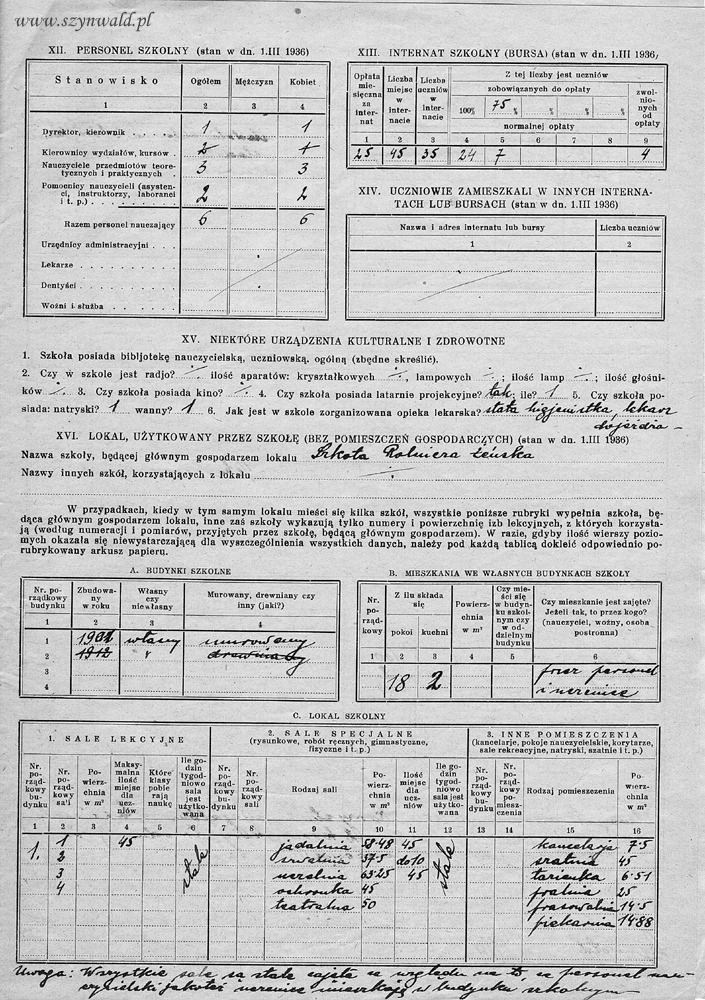 www.szynwald.pl
XII. PERSONEL SZKOLNY (stan w dn. 1.III 1936)
Stanowisko Ogółem Mężczyzn Kobiet
1 2 3 4
Dyrektor, kierownik . . . . 1 1
Kierownicy wydziałów, kursów .
Nauczyciele przedmiotów teore-
tycznych i praktycznych . 3 3
Pomocnicy nauczycieli (asysten-
ci, instruktorzy, laboranci
i t. p.) . . . . . . . . 2 2
Razem personel nauczający 6 6
Urzędnicy administracyjni . . .
Lekarze . . . . . . . . .
Dentyści . . . . . . . . .
Woźni i służba . . . . . .
XIII. INTERNAT SZKOLNY (BURSA) (stan w dn. 1.III 1936)
Opłata miesięczna za internat
Liczba miejsc w internacie
Liczba uczniów w internacie
Z tej liczby jest uczniów
zobowiązanych do opłaty
100% 75% % % %
normalnej opłaty
zwolnionych od opłaty
1 2 3 4 5 6 7 8 9
25 45 35 24 7 4
XIV. UCZNIOWIE ZAMIESZKALI W INNYCH INTERNA-
TACH LUB BURSACH (stan w dn. 1.III 1936)
Nazwa i adres internatu lub bursy Liczba uczniów
1 2
XV. NIEKTÓRE URZĄDZENIA KULTURALNE I ZDROWOTNE
1. Szkoła posiada bibljotekę nauczycielską, uczniowską, ogólną (zbędne skreślić).
2. Czy w szkole jest radjo? ilość aparatów: kryształkowych , lampowych ; ilość lamp ; ilość głośni-
ków . 3. Czy szkoła posiada kino? 4. Czy szkoła posiada latarnie projekcyjne? tak; ile? 1 5. Czy szkoła po-
siada: natryski? 1 wanny? 1 6. Jak jest w szkole zorganizowana opieka lekarska? stała higjenistka, lekarz
dojeżdża -
XVI. LOKAL, UŻYTKOWANY PRZEZ SZKOŁĘ (BEZ POMIESZCZEŃ GOSPODARCZYCH) (stan w dn. 1.III 1936)
Nazwa szkoły, będącej głównym gospodarzem lokalu Szkoła Rolnicza żeńska
Nazwy innych szkół, korzystających z lokalu
W przypadkach, kiedy w tym samym lokalu mieści się kilka szkół, wszystkie poniższe rubryki wypełnia szkoła, bę-
dąca głównym gospodarzem lokalu, inne zaś szkoły wykazują tylko numery i powierzchnię izb lekcyjnych, z których korzysta-
ją (według numeracji i pomiarów, przyjętych przez szkołę, będącą głównym gospodarzem). W razie, gdyby ilość wierszy pozio-
mych okazała się niewystarczającą dla wyszczególnienia wszystkich danych, należy pod każdą tablicą dokleić odpowiednio po-
rubrykowany arkusz papieru.
A. BUDYNKI SZKOLNE
Nr. porządkowy budynku
Zbudowany w roku
Własny czy niewłasny
Murowany, drewniany czy inny (jaki?)
1 2 3 4
1 własny murowany
2 1912 drewniany
3
4
B. MIESZKANIA WE WŁASNYCH BUDYNKACH SZKOŁY
Nr. porządkowy
Z ilu składa się
pokoi kuchni
Powierzchnia w m²
Czy mieści się w budynku szkolnym czy w oddzielnym budynku
Czy mieszkanie jest zajęte? Jeżeli tak, to przez kogo? (nauczyciel, woźny, osoba postronna)
1 2 3 4 5 6
18 2 przez personel
i uczenice
C. LOKAL SZKOLNY
1. SALE LEKCYJNE
2. SALE SPECJALNE
(rysunkowe, robót ręcznych, gimnastyczne, fizyczne i t. p.)
3. INNE POMIESZCZENIA
(kancelarje, pokoje nauczycielskie, korytarze, sale rekreacyjne, natryski, szatnie i t. p.)
Nr. porządkowy budynku
Nr. porządkowy sali
Powierzchnia w m²
Maksymalna ilość miejsc dla uczniów
Które klasy pobierają naukę
Ile godzin tygodniowo sala jest użytkowana
Nr. porządkowy budynku
Nr. porządkowy sali
Rodzaj sali
Powierzchnia w m²
Ilość miejsc dla uczniów
Ile godzin tygodniowo sala jest użytkowana
Nr. porządkowy budynku
Nr. porządkowy pomieszczenia
Rodzaj pomieszczenia
Powierzchnia w m²
1 2 3 4 5 6 7 8 9 10 11 12 13 14 15 16
1. 1 45 stale jadalnia 58·48 45 stale kancelarja 7·5
2 37·5 do10 szatnia 45
3 uczelnia 63·25 45 łazienka 6·51
4 ochronka 45 pralnia 25
teatralna 50 prasowalnia 14·5
piekarnia 14·88
Uwaga: Wszystkie sale są stale zajęte ze względu na to, że personel nau-
czycielski jakoteż uczenice mieszkają w budynku szkolnym